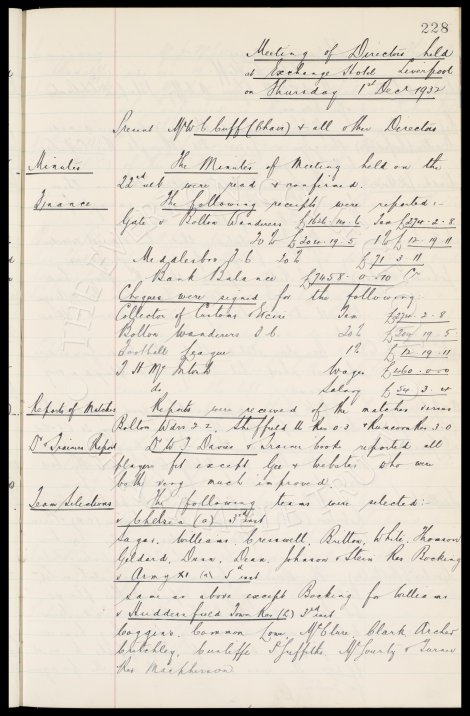 228
Meeting of Directors held
at Exchange Hotel Liverpool
on Thursday 1st Decr 1932
Present Mr W C Cuff (Chair) & all other Directors
Minutes The Minutes of Meeting held on the
22nd ult were read & confirmed.
Finance The following receipts were reported:-
Gate v Bolton Wanderers £1626.14.6 Tax £274.2.8
20% £204.19.5 1% £12.19.11
Middlesbro F C 20% £71 3 11
Bank Balance £7458.0.10 Cr
Cheques were signed for the following:-
Collector of Customs & Excise Tax £274.2.8
Bolton Wanderers F C 20% £204.19.5
Football League 1% £12.19.11
T H McIntosh Wages £460.0.0
do Salary £54.3.4
Reports of Matches Reports were received of the matches versus
Bolton Wdrs 2.2, Sheffield U Res 0.3 & Runcorn Res 3.0
Dr & Trainer Report Dr W J Davies & Trainer book reported all
players fit except Gee & Webster who were
both very much improved.
Team Selections The following teams were selected:-
v Chelsea (a) 3rd inst
Sagar, Williams, Cresswell, Britton, White, Thomson
Geldard, Dunn, Dean, Johnson & Stein Res Bocking
v Army XI (a) 5th inst
Same as above except Bocking for Williams
v Huddersfield Town Res (h) 3rd inst
Coggins, Common, Lowe, McClure, Clark, Archer
Critchley, Cunliffe, P Griffiths, McGourty & Turner
Res Macpherson